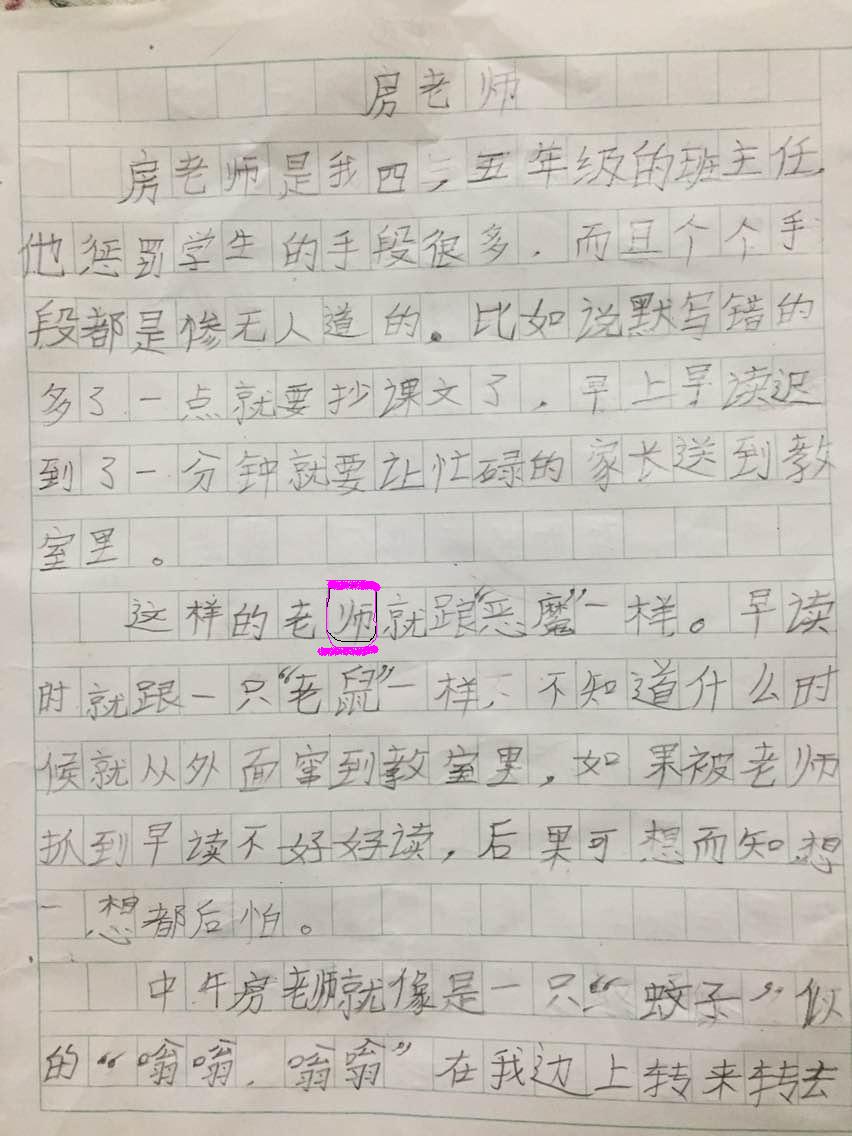 房老师
房老师是我四、五年级的班主任,
他惩罚学生的手段很多,而且个个手
段都是惨无人道的。比如说默写错的
多了一点就要抄课文了,早上早读迟
到了一分钟就要让忙碌的家长送到教
室里。
这样的老师就跟“恶魔”一样。早读
时就跟一只“老鼠”一样,不知道什么时
候就从外面窜到教室里,如果被老师
抓到早读不好好读,后果可想而知,想
一想都后怕。
中午房老师就像是一只“蚊子”似
的“嗡嗡,嗡嗡”在我边上转来转去